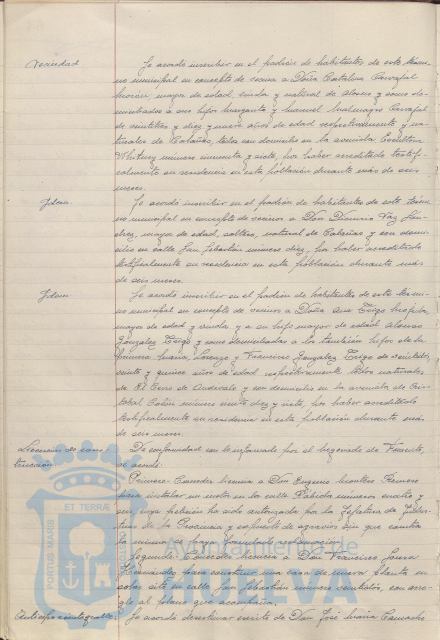 Vecindad Se acordó inscribir en el padrón de habitantes de este térmi-
no municipal en concepto de vecina a Doña Catalina Carvajal
Morón, mayor de edad, viuda y natural de Alosno y como do-
miciliados a sus hijos Margarita y Manuel Carvajal
de veintitres y diez y nueve años de edad respectivamente y na-
turales de Calañas, todos con domicilio en la avenida Escultora
Whitney número noventa y siete, por haber acreditado testifi-
calmente su residencia en esta población durante más de seis
meses.
Idem Se acordó inscribir en el padrón de habitantes de este térmi-
no municipal en concepto de vecino a Don Dionisio Vaz Sán-
chez, mayor de edad, soltero, natural de Calañas y con domi-
cilio en calle San Sebastián número diez, por haber acreditado
testificalmente su residencia en esta población durante más
de seis meses.
Idem Se acordó inscribir en el padrón de habitantes de este térmi-
no municipal en concepto de vecinos a Doña Ana Trigo
mayor de edad y viuda y a su hijo mayor de edad Alonso
González Trigo y como domiciliados a los también hijos de la
primera María Lorenza y Francisco González Trigo de veintidós,
veinte y quince años de edad respectivamente todos naturales
de El Cerro de Andévalo y con domicilio en la avenida de Cris-
tobal Colón número ciento diez y siete, por haber acreditado
testificalmente su residencia en esta población durante más
de seis meses.
Licencias de cons- De conformidad con lo informado por el Negociado de Fomento,
trucción se acordó:
Primero: Conceder licencia a Don Eugenio Montes Romero
para instalar un motor en la calle Rábida número cuatro y
cuya petición ha sido autorizada por la Jefatura de Indus-
trias de la Provincia y expediente de agravios sin que contra
misma se haya formulado reclamación.
Segundo: Conceder licencia a Don Francisco García
Hernández para construir una casa de nueva planta en
solar sito en calle San Sebastián número veintidós, con arre-
glo al plano que acompaña.
Anticipo reintegrable Se acordó desestimar escrito de Don José María Camacho
PORTUS MARIS
ET TERRAE
Ayuntamiento de
HUELVA